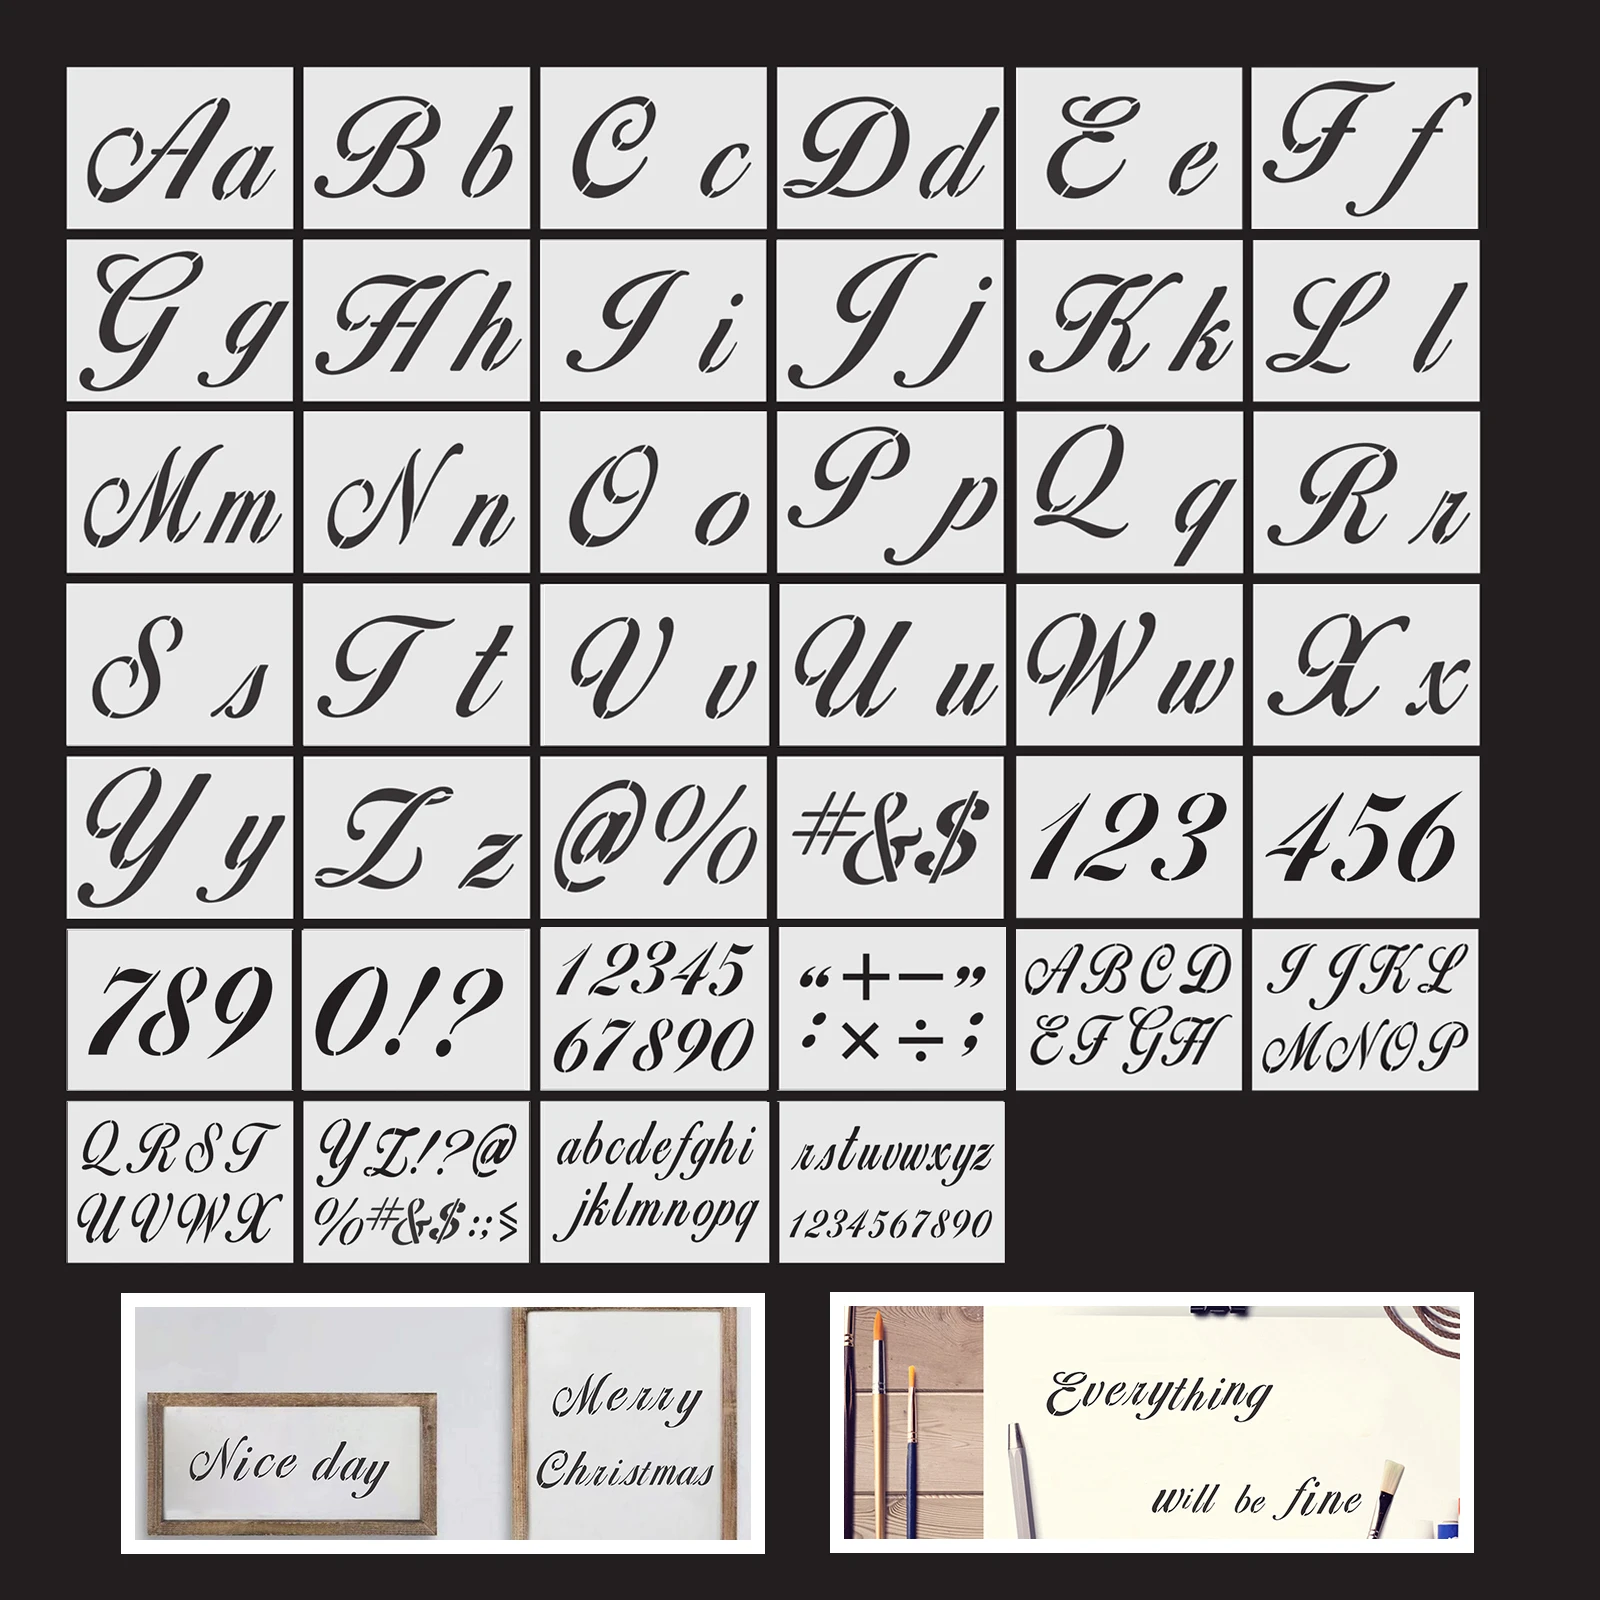 Aa Bb Cc Dd Ee Ff
Gg Hh Ii Jj Kk Ll
Mm Nn Oo Pp Qq Rr
Ss Tt Vv Uu Ww Xx
Yy Zz @% #&$ 123 456
789 0!?
12345
67890
“+−”
:×÷;
ABCD
EFGH
IJKL
MNOP
QRST
UVWX
YZ!?@
%#&$:;
abcdefghi
jklmnopq
rstuvwxyz
1234567890
Nice day
Merry
Christmas
Everything
will be fine